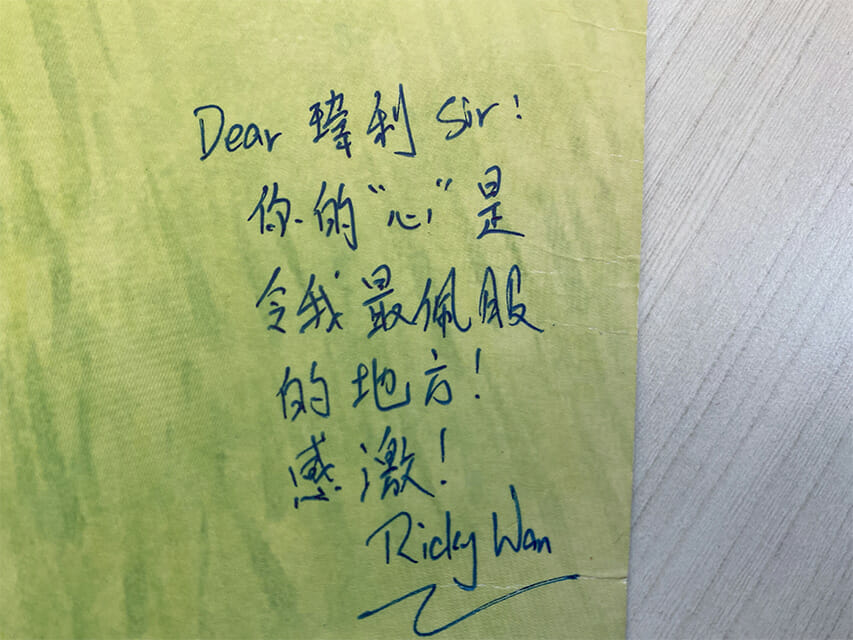 Dear 瑋利 Sir！
你的“心”是
令我最佩服
的地方！
感激！
Ricky Wan